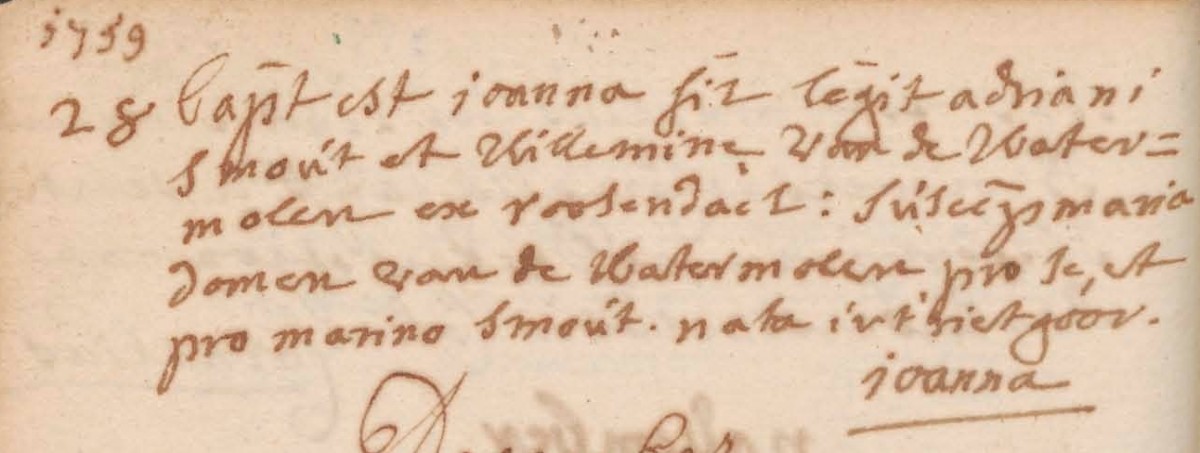 1759
28 bapt est joanna fil legit adriani
smout et Willemine van de Water=
molen ex roosendael: suscep maria
domen van de Watermolen pro se, et
pro marino smout. nata in't rietgoor.
joanna